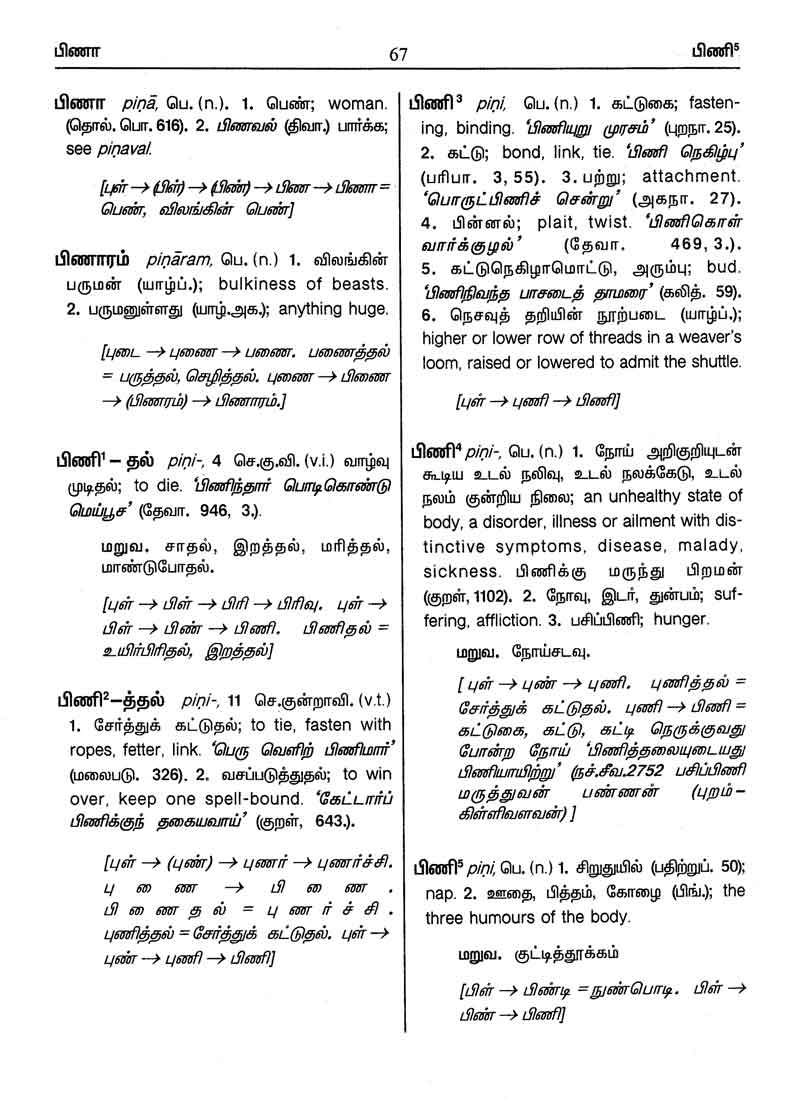 பிணா
67
பிணி⁵
பிணா piṇā, பெ. (n.). 1. பெண்; woman.
(தொல். பொ. 616). 2. பிணவல் (திவா.) பார்க்க;
see piṇaval.
[புள் → (பிள்) → (பிண்) → பிண → பிணா =
பெண், விலங்கின் பெண்]
பிணாரம் piṇāram, பெ. (n.) 1. விலங்கின்
பருமன் (யாழ்ப்.); bulkiness of beasts.
2. பருமனுள்ளது (யாழ்.அக.); anything huge.
[புடை → புணை → பணை. பணைத்தல்
= பருத்தல், செழித்தல். புணை → பிணை
→ (பிணரம்) → பிணாரம்.]
பிணி¹ – தல் piṇi-, 4 செ.கு.வி. (v.i.) வாழ்வு
முடிதல்; to die. ‘பிணிந்தார் பொடிகொண்டு
மெய்பூச’ (தேவா. 946, 3.).
மறுவ. சாதல், இறத்தல், மரித்தல்,
மாண்டுபோதல்.
[புள் → பிள் → பிரி → பிரிவு. புள் →
பிள் → பிண் → பிணி. பிணிதல் =
உயிர்பிரிதல், இறத்தல்]
பிணி²–த்தல் piṇi-, 11 செ.குன்றாவி. (v.t.)
1. சேர்த்துக் கட்டுதல்; to tie, fasten with
ropes, fetter, link. ‘பெரு வெளிற் பிணிமார்’
(மலைபடு. 326). 2. வசப்படுத்துதல்; to win
over, keep one spell-bound. ‘கேட்டார்ப்
பிணிக்குந் தகையவாய்’ (குறள், 643.).
[புள் → (புண்) → புணர் → புணர்ச்சி.
புணை → பிணை.
பிணைதல் = புணர்ச்சி.
புணித்தல் = சேர்த்துக் கட்டுதல். புள் →
புண் → புணி → பிணி]
பிணி³ piṇi, பெ. (n.) 1. கட்டுகை; fasten-
ing, binding. ‘பிணியுறு முரசம்’ (புறநா. 25).
2. கட்டு; bond, link, tie. ‘பிணி நெகிழ்பு’
(பரிபா. 3, 55). 3. பற்று; attachment.
‘பொருட்பிணிச் சென்று’ (அகநா. 27).
4. பின்னல்; plait, twist. ‘பிணிகொள்
வார்க்குழல்’ (தேவா. 469, 3.).
5. கட்டுநெகிழாமொட்டு, அரும்பு; bud.
‘பிணிநிவந்த பாசடைத் தாமரை’ (கலித். 59).
6. நெசவுத் தறியின் நூற்படை (யாழ்ப்.);
higher or lower row of threads in a weaver's
loom, raised or lowered to admit the shuttle.
[புள் → புணி → பிணி]
பிணி⁴ piṇi-, பெ. (n.) 1. நோய் அறிகுறியுடன்
கூடிய உடல் நலிவு, உடல் நலக்கேடு, உடல்
நலம் குன்றிய நிலை; an unhealthy state of
body, a disorder, illness or ailment with dis-
tinctive symptoms, disease, malady,
sickness. பிணிக்கு மருந்து பிறமன்
(குறள், 1102). 2. நோவு, இடர், துன்பம்; suf-
fering, affliction. 3. பசிப்பிணி; hunger.
மறுவ. நோய்சடவு.
[ புள் → புண் → புணி. புணித்தல் =
சேர்த்துக் கட்டுதல். புணி → பிணி =
கட்டுகை, கட்டு, கட்டி நெருக்குவது
போன்ற நோய் ‘பிணித்தலையுடையது
பிணியாயிற்று’ (நச்.சீவ.2752 பசிப்பிணி
மருத்துவன் பண்ணன் (புறம்-
கிள்ளிவளவன்) ]
பிணி⁵ piṇi, பெ. (n.) 1. சிறுதுயில் (பதிற்றுப். 50);
nap. 2. ஊதை, பித்தம், கோழை (பிங்.); the
three humours of the body.
மறுவ. குட்டித்தூக்கம்
[பிள் → பிண்டி = நுண்பொடி. பிள் →
பிண் → பிணி]